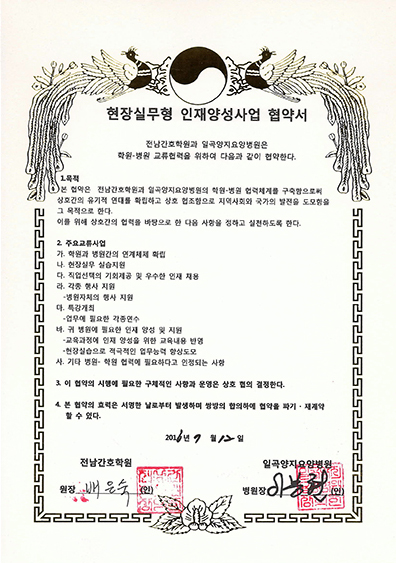 현장실무형 인재양성사업 협약서
전남간호학원과 일곡양지요양병원은
학원-병원 교류협력을 위하여 다음과 같이 협약한다.
1.목적
본 협약은 전남간호학원과 일곡양지요양병원의 학원-병원 협력체계를 구축함으로써
상호간의 유기적 연대를 확립하고 상호 협조함으로 지역사회와 국가의 발전을 도모함을
그 목적으로 한다.
이를 위해 상호간의 협력을 바탕으로 한 다음 사항을 정하고 실천하도록 한다.
2. 주요교류사업
가. 학원과 병원간의 연계체제 확립
나. 현장실무 실습지원
다. 직업선택의 기회제공 및 우수한 인재 채용
라. 각종 행사 지원
-병원자체의 행사 지원
마. 특강개최
-업무에 필요한 각종연수
바. 귀 병원에 필요한 인재 양성 및 지원
-교육과정에 인재 양성을 위한 교육내용 반영
-현장실습으로 적극적인 업무능력 향상도모
사. 기타 병원- 학원 협력에 필요하다고 인정되는 사항
3. 이 협약의 시행에 필요한 구체적인 사항과 운영은 상호 협의 결정한다.
4. 본 협약의 효력은 서명한 날로부터 발생하며 쌍방의 합의하에 협약을 파기 · 재계약
할 수 있다.
2016년 7월 12일
전남간호학원 일곡양지요양병원
원장 배은숙 (인) 병원장 (인)